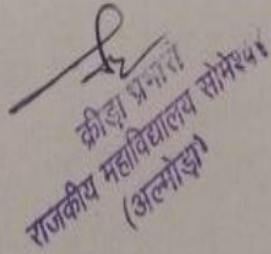 क्रीड़ा प्रभारी
राजकीय महाविद्यालय सोमेश्वर
(अल्मोड़ा)